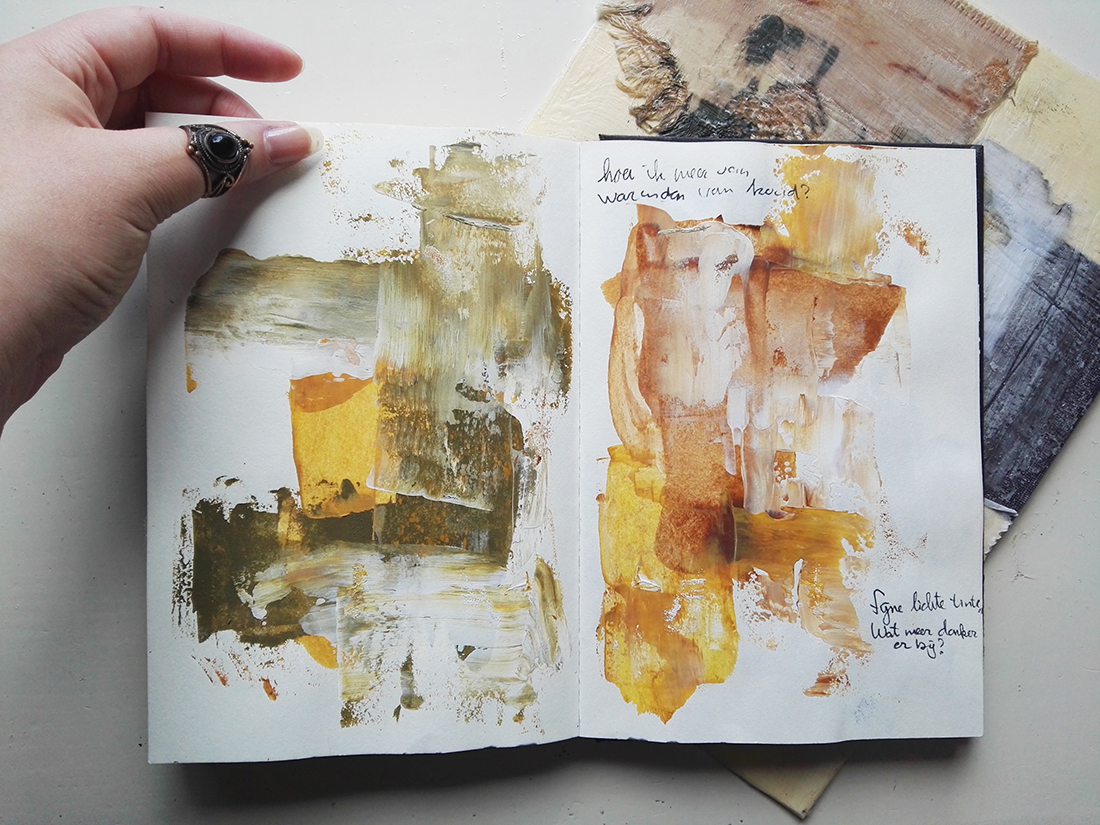 hou ik meer van
warm dan van koud?
Fijne lichte tinten
Wat meer donker
er bij?